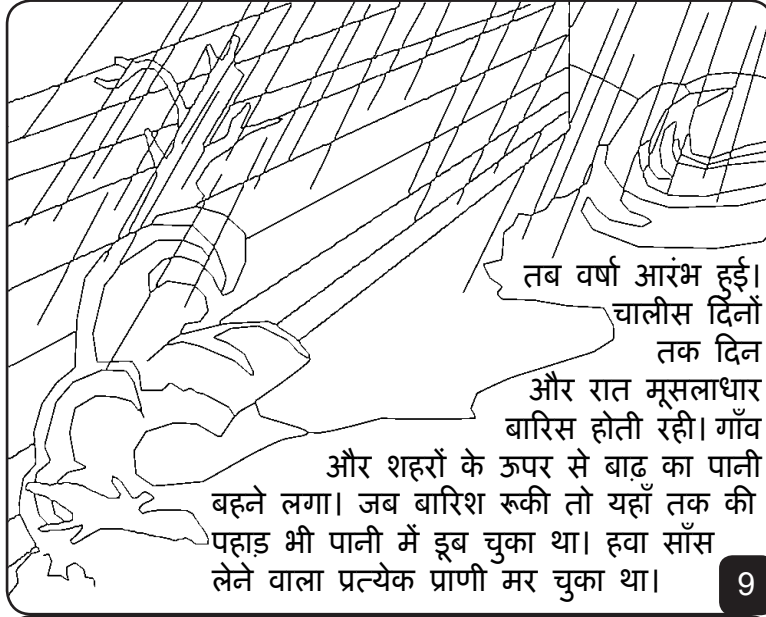 तब वर्षा आरंभ हुई।
चालीस दिनों
तक दिन
और रात मूसलाधार
बारिस होती रही। गाँव
और शहरों के ऊपर से बाढ़ का पानी
बहने लगा। जब बारिश रूकी तो यहाँ तक की
पहाड़ भी पानी में डूब चुका था। हवा साँस
लेने वाला प्रत्येक प्राणी मर चुका था।
9